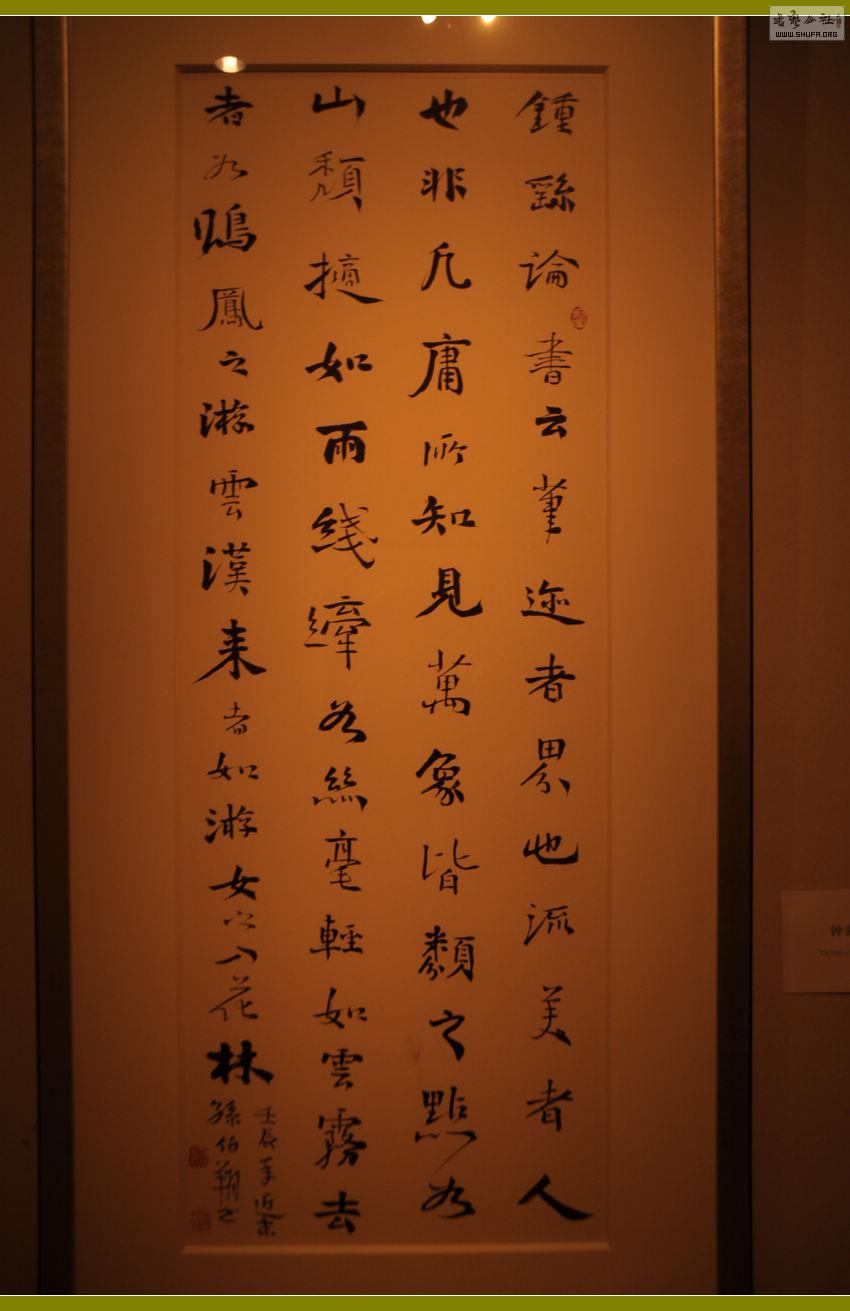 鍾繇論書云筆迹者界也流美者人
也非凡庸所知見萬象皆類之點如
山頹擿如雨线縴如絲毫輕如雲霧去
者如鳴鳳之游雲漢来者如游女之入花林
壬辰年
孫伯翔书
书法公社
WWW.SHUFA.ORG
钟